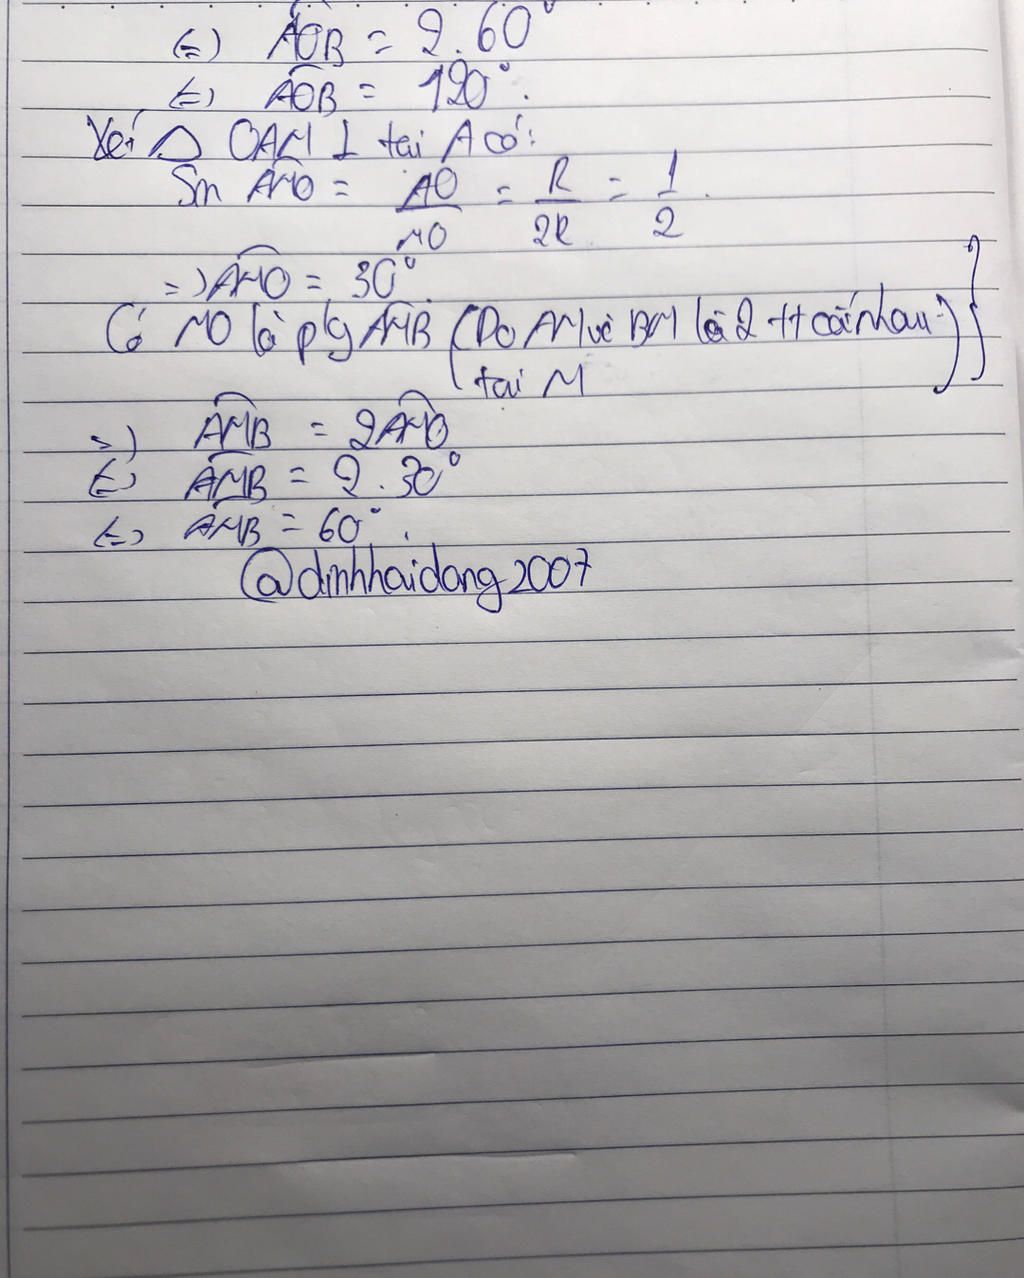 (=) AOB = 2.60°
(=) AOB = 120°.
Xét △ OAM ⊥ tại A có:
Sin AMO = AO/MO = R/2R = 1/2.
=) AMO = 30°.
Có MO là p/g AMB (Do AM và BM là 2 tt cắt nhau
tại M)}
=) AMB = 2AMO
(=) AMB = 2.30°
(=) AMB = 60°.
@dinhhaidang2007